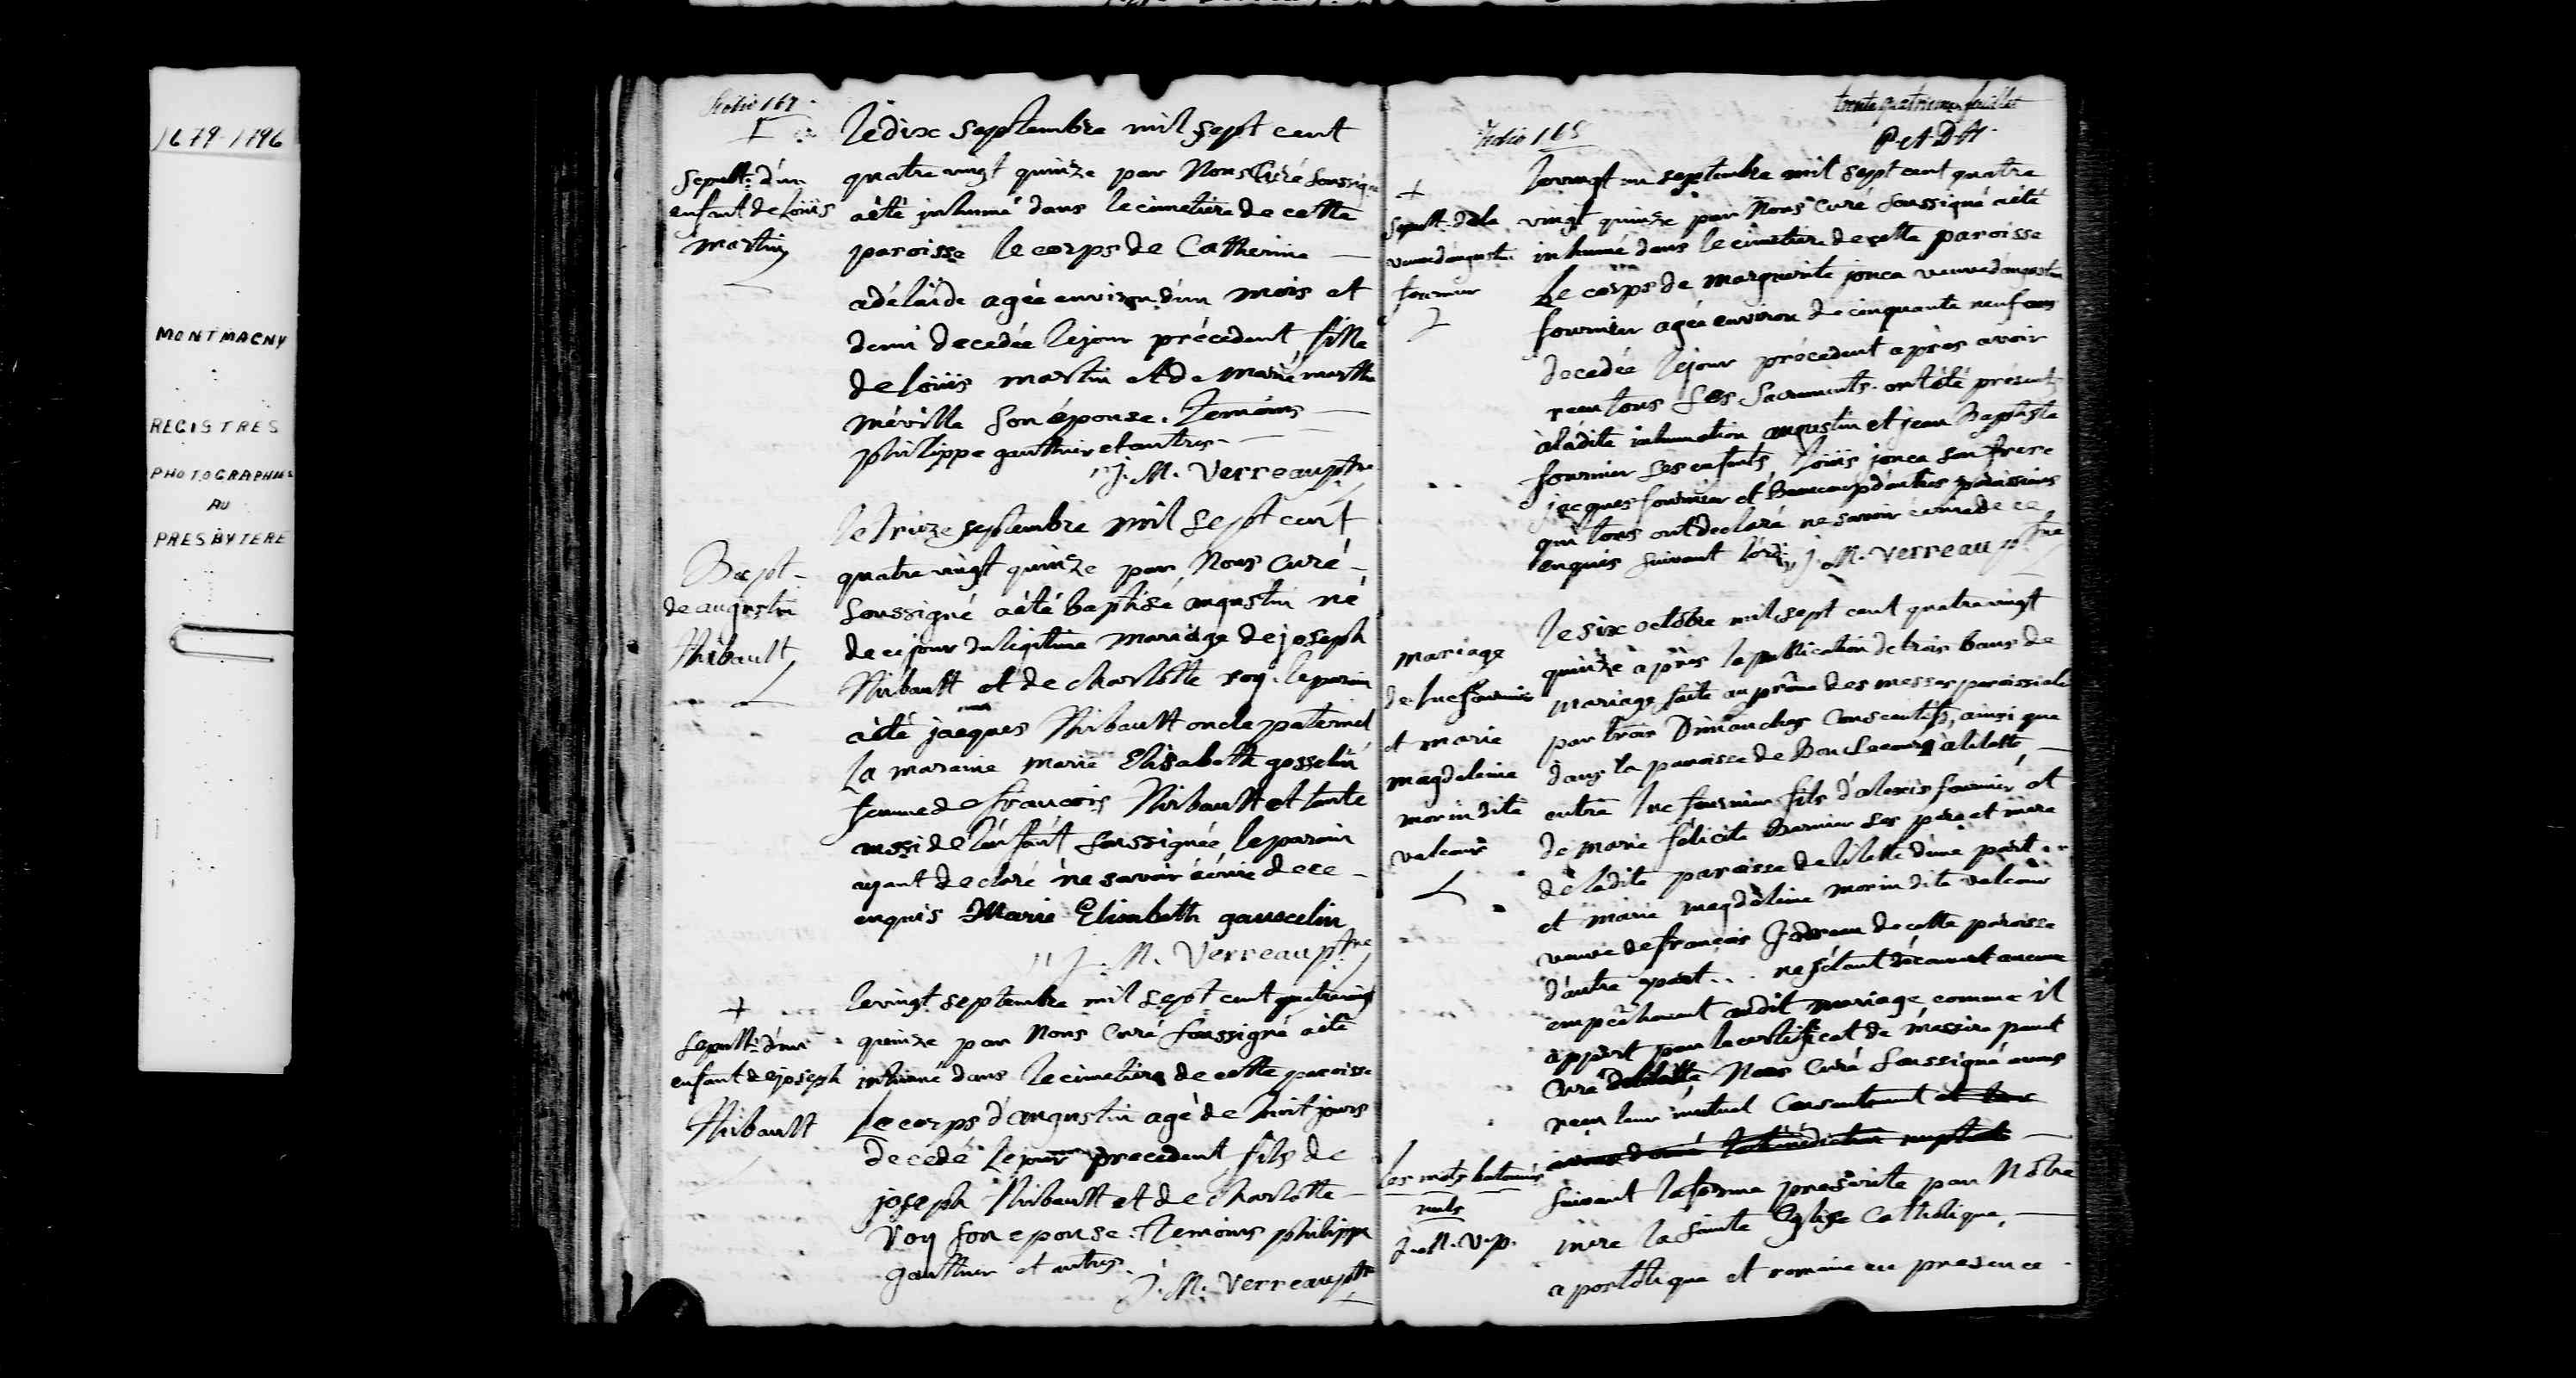 1679-1796
MONTMAGNY
REGISTRES
PHOTOGRAPHIÉS
AU
PRESBYTERE
folio 167.
Sepult: d'un
enfant de Loüis
martin
le dix septembre mil sept cent
quatre vingt quinze par Nous Curé soussigné
a été inhumé dans le cimetiere de cette
paroisse le corps de Catherine
adélaïde agée environ d'un mois et
demi decedée le jour précédent, fille
de loüis martin et de marie marthe
méville son épouse. Temoins
philippe gauthier et autres
J. M. Verreau ptre
Bapt.
de augustin
Thibault
le treize septembre mil sept cent
quatre vingt quinze par Nous Curé
soussigné a été baptisé augustin né
de ce jour du legitime mariage de joseph
Thibault et de charlotte roy. le parain
a été jacques Thibault oncle paternel
la maraine marie Elisabeth gosselin
femme de françois Thibault et tante
aussi de l'enfant soussignée, le parain
ayant declaré ne savoir écrire de ce
enquis Marie Elisabeth gausselin
J. M. Verreau ptre
Sepult: d'un
enfant de joseph
Thibault
le vingt septembre mil sept cent quatre vingt
quinze par Nous Curé soussigné a été
inhumé dans le cimetiere de cette paroisse
le corps d'augustin agé de huit jours
decedé le jour precedent, fils de
joseph Thibault et de charlotte
roy son epouse. Temoins philippe
gauthier et autres.
J. M. Verreau ptre
trente quatrieme feuillet
folio 168
P. A. D. H.
Sepult. de la
veuve d'augustin
fournier
le vingt un septembre mil sept cent quatre
vingt quinze par Nous Curé soussigné a été
inhumé dans le cimetiere de cette paroisse
le corps de marguerite jonca veuve d'augustin
fournier agée environ de cinquante neuf ans
decedée le jour précedent après avoir
reçu tous ses Sacrements. ont été présents
à la dite inhumation augustin et jean Baptiste
fournier ses enfants, loüis jonca son frere
jacques fournier et Beaucoup d'autres paroissiens
qui tous ont declaré ne savoir écrire de ce
enquis suivant l'ord: J. M. Verreau ptre
mariage
de luc fournier
et marie
magdeleine
morin dite
valcour
le six octobre mil sept cent quatre vingt
quinze après la publication de trois bans de
mariage faite au prône des messes paroissiales
par trois Dimanches Consecutifs, ainsi que
dans la paroisse de Bon Secours à lilette
entre luc fournier fils d'alexis fournier et
de marie félicité Bernier ses père et mere
de ladite paroisse de lilette d'une part
et marie magdeleine morin dite valcour
veuve de françois de cette paroisse
d'autre part... ne s'étant découvert aucun
empêchement audit mariage, comme il
appert par le certificat de messire panet
Curé de lilette, Nous Curé soussigné avons
reçu leur mutuel Consentement et leur
avons donné la bénédiction nuptiale
suivant la forme prescrite par Nôtre
mere la sainte Eglise Catholique,
apostolique et romaine en presence
les mots batonnés
nuls
J. M. V. p.